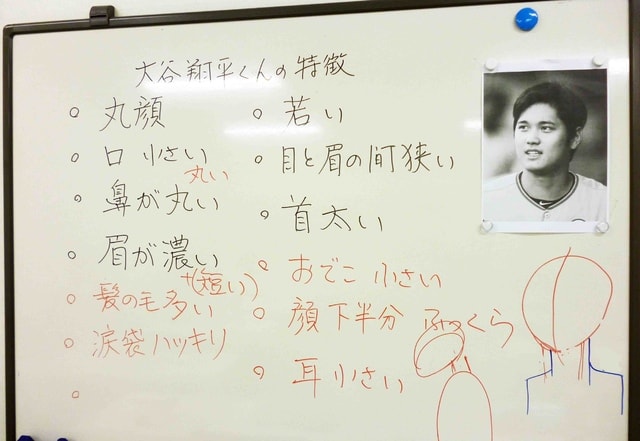 大谷翔平くんの特徴
○ 丸顔
○ 口 小さい
丸い
○ 鼻が丸い
○ 眉が濃い
○ 髪の毛多い
(短い)
○ 涙袋ハッキリ
○
○ 若い
○ 目と眉の間狭い
○ 首太い
○ おでこ 小さい
○ 顔下半分 ふっくら
○ 耳 小さい